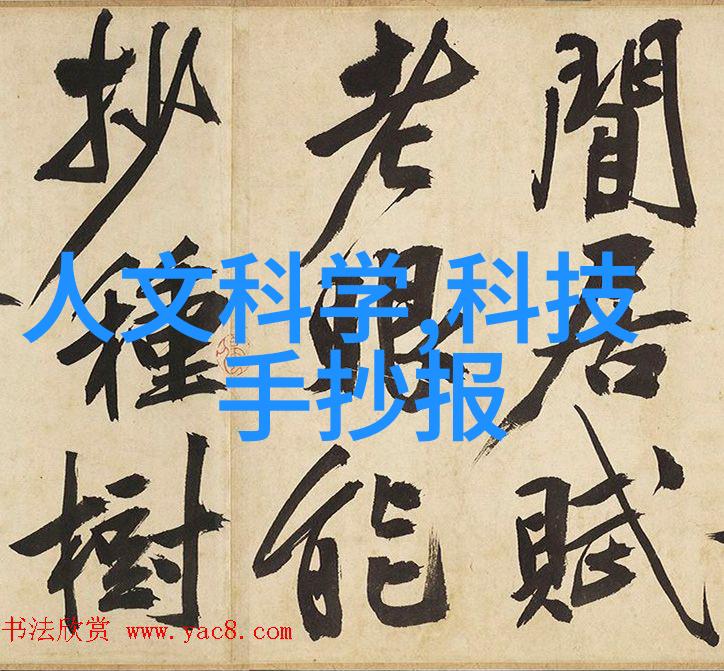 閒居賦
老眼能
抄種樹
人文科学,科技
手抄报
书法欣赏 www.yac8.com